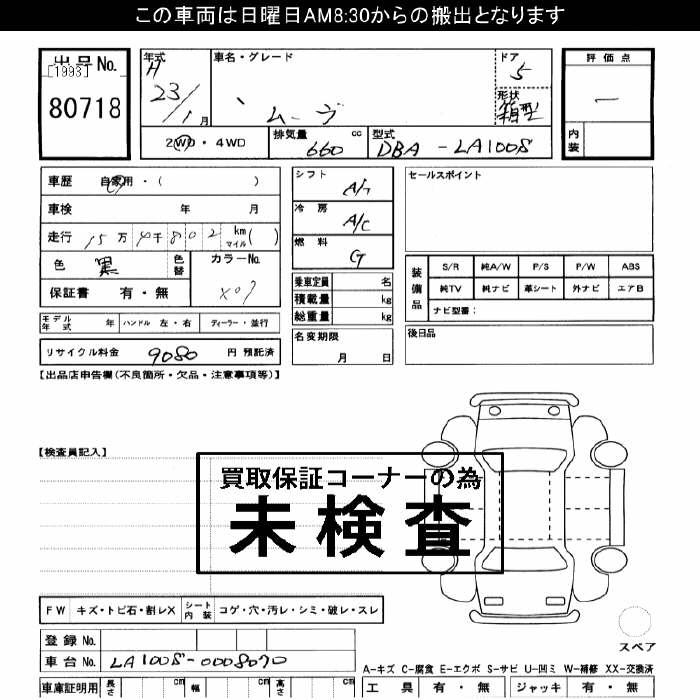 この車両は日曜日AM8:30からの搬出となります
出品 No.
[1993]
80718
年式 車名・グレード ドア 評価点
H 23/1月 ムーヴ 5 一
形状 箱型
内装
2WD・4WD 排気量 660 cc 型式 DBA-LA100S
車歴 自家用・( )
車検 年 月
走行 15万 4千802 km マイル( )
色 黒 色替 カラーNo. X07
保証書 有・無
シフト A/T
冷房 A/C
燃料 G
乗車定員 名
積載量 kg
総重量 kg
名変期限
月 日
セールスポイント
装備品 S/R 純A/W P/S P/W ABS
純TV 純ナビ 革シート 外ナビ エアB
ナビ型番:
後日品
モデル年式 年 ハンドル 左・右 ディーラー・並行
リサイクル料金 9080 円 預託済
【出品店申告欄(不良箇所・欠品・注意事項等)】
【検査員記入】
買取保証コーナーの為
未検査
FW キズ・トビ石・割レX シート内装 コゲ・穴・汚レ・シミ・破レ・スレ
登録 No.
車台 No. LA100S-0008070
スペア
A-キズ C-腐食 E-エクボ S-サビ U-凹ミ W-補修 XX-交換済
車庫証明用 長さ cm 幅 cm 高さ cm
工具 有・無 ジャッキ 有・無